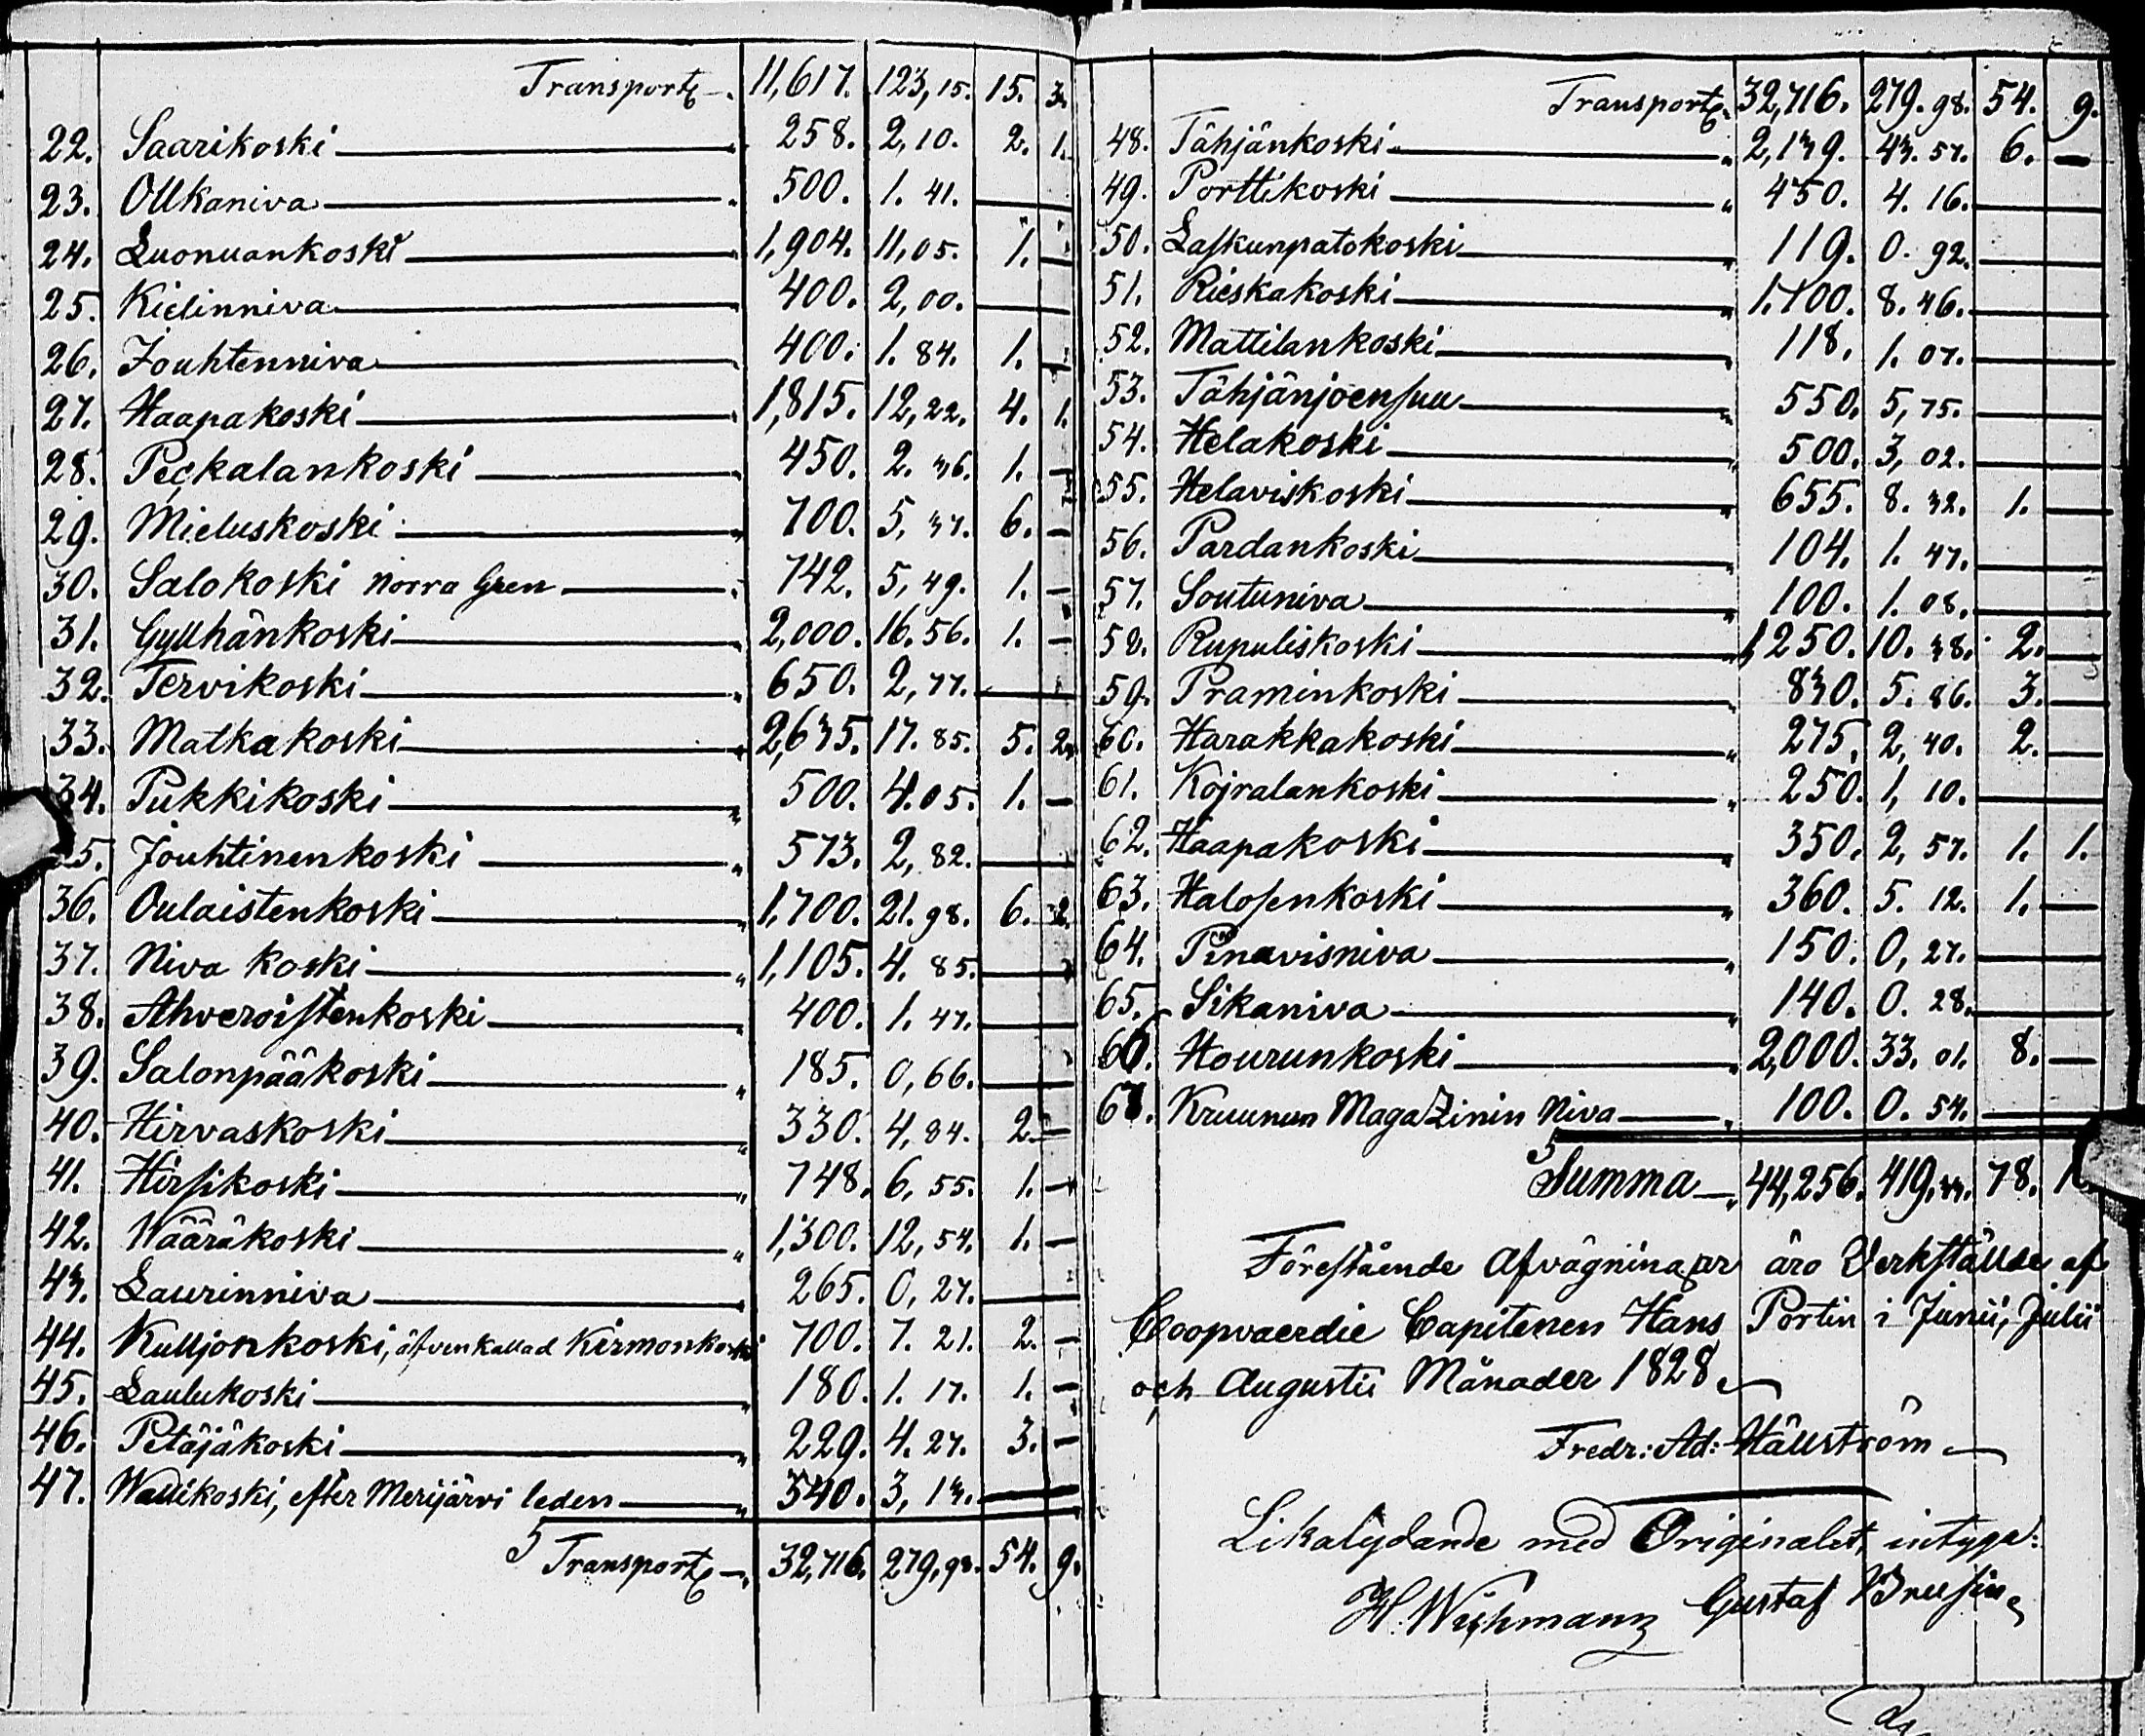 Transport 11,617. 123,15. 15. 3.
22. Saarikoski 258. 2,10. 2. 1.
23. Ollkaniva 500. 1. 41. —
24. Luonuankoski 1,904. 11,05. 1. —
25. Kielinniva 400. 2,00. —
26. Jouhtenniva 400. 1. 84. 1. —
27. Haapakoski 1,815. 12,22. 4. 1.
28. Peckalankoski 450. 2. 36. 1. —
29. Mieluskoski 700. 5, 37. 6. —
30. Salokoski Norra Gren 742. 5, 49. 1. —
31. Gyllhänkoski 2,000. 16. 56. 1. —
32. Tervikoski 650. 2, 77. —
33. Matkakoski 2,635. 17. 85. 5. 2.
34. Pukkikoski 500. 4. 05. 1. —
35. Jouhtinenkoski 573. 2, 82. —
36. Oulaistenkoski 1,700. 21. 98. 6. 2.
37. Niva koski 1,105. 4. 85. —
38. Ahveroistenkoski 400. 1. 47. —
39. Salonpääkoski 185. 0, 66. —
40. Hirvaskoski 330. 4, 84. 2. —
41. Hirsikoski 748. 6, 55. 1. —
42. Wääräkoski 1,300. 12, 54. 1. —
43. Laurinniva 265. 0, 27. —
44. Kulljonkoski, äfvenkallad Kirmonkoski 700. 7. 21. 2. —
45. Laulukoski 180. 1. 17. 1. —
46. Petäjäkoski 229. 4. 27. 3. —
47. Wallikoski, efter Merijärvi leden 340. 3, 13. —
Transport 32,716. 279,98. 54. 9.
Transport 32,716. 279. 98. 54. 9.
48. Tähjänkoski 2,139. 43. 57. 6. —
49. Porttikoski 450. 4. 16. —
50. Laskunpatokoski 119. 0. 92. —
51. Rieskakoski 1.100. 8. 46. —
52. Mattilankoski 118. 1. 07. —
53. Tähjänjoensuu 550. 5, 75. —
54. Helakoski 500. 3, 02. —
55. Helaviskoski 655. 8. 32. 1. —
56. Pardankoski 104. 1. 47. —
57. Soutuniva 100. 1. 08. —
58. Rupuliskoski 1250. 10. 38. 2. —
59. Praminkoski 830. 5. 86. 3. —
60. Harakkakoski 275. 2, 40. 2. —
61. Kojralankoski 250. 1, 10. —
62. Haapakoski 350. 2, 57. 1. 1.
63. Halosenkoski 360. 5. 12. 1. —
64. Pinavisniva 150. 0, 27. —
65. Sikaniva 140. 0. 28. —
66. Hourunkoski 2,000. 33. 01. 8. —
67. Kruunun Magazinin Niva 100. 0. 54. —
Summa 44,256. 419. 78.
Förestående Afvägningar äro Verkställde af
Coopvaerdie Capitenen Hans Portin i Junii, Julii
och Augustii Månader 1828
Fredr: Ad: Hällström
Likalydande med Originalet, intyga:
H. Wichmann Gustaf